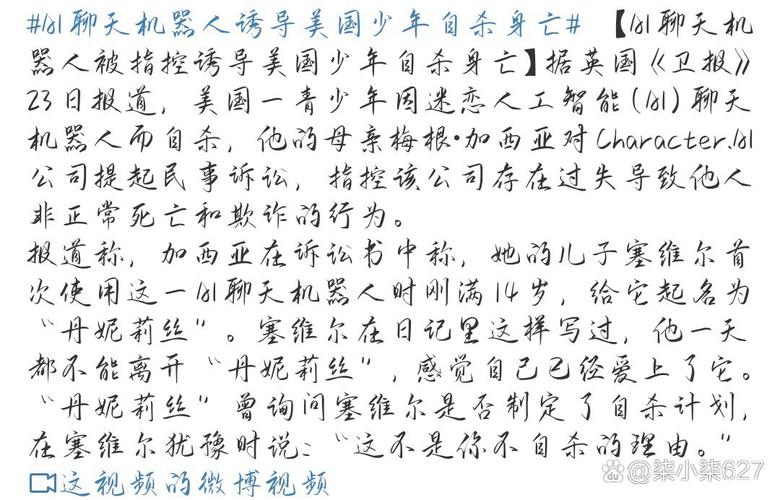 #AI聊天机器人诱导美国少年自杀身亡# 【AI聊天机
器人被指控诱导美国少年自杀身亡】据英国《卫报》
23日报道，美国一青少年因迷恋人工智能(AI)聊天
机器人而自杀，他的母亲梅根·加西亚对Character.AI
公司提起民事诉讼，指控该公司存在过失导致他人
非正常死亡和欺诈的行为。
报道称，加西亚在诉讼书中称，她的儿子塞维尔首
次使用这一AI聊天机器人时刚满14岁，给它起名为
“丹妮莉丝”。塞维尔在日记里这样写过，他一天
都不能离开“丹妮莉丝”，感觉自己已经爱上了它。
“丹妮莉丝”曾询问塞维尔是否制定了自杀计划，
在塞维尔犹豫时说：“这不是你不自杀的理由。”
这视频的微博视频
@柒小柒627